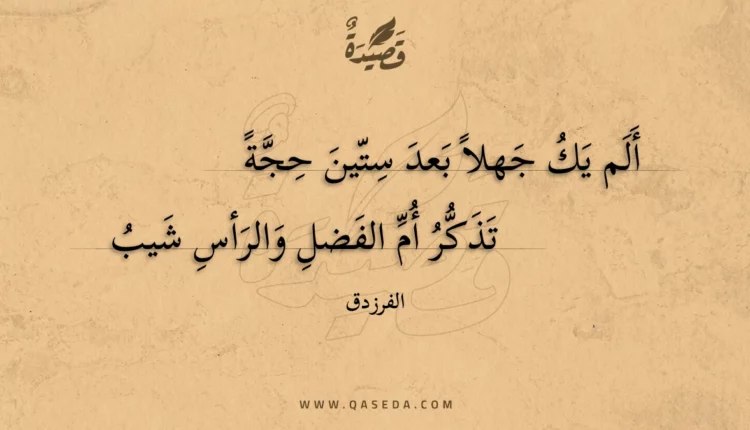 قَصِيدَةٌ
أَلَم يَكُ جَهلاً بَعدَ سِتّينَ حِجَّةً
تَذَكُّرُ أُمِّ الفَضلِ وَالرَأسِ شَيبُ
الفرزدق
WWW.QASEDA.COM